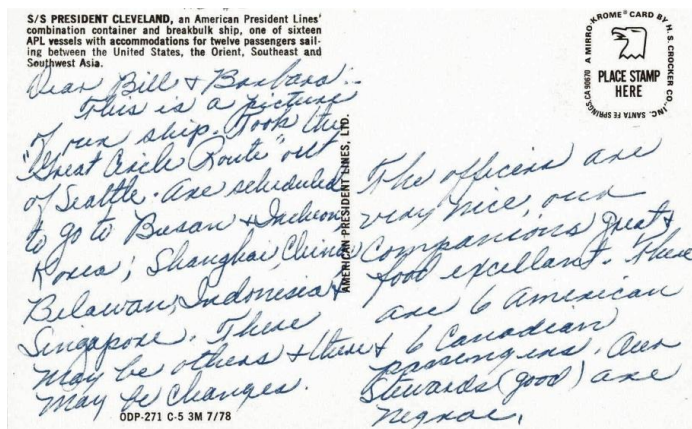 S/S PRESIDENT CLEVELAND, an American President Lines'
combination container and breakbulk ship, one of sixteen
APL vessels with accommodations for twelve passengers sail-
ing between the United States, the Orient, Southeast and
Southwest Asia.
Dear Bill & Barbara:
This is a picture
of our ship. Took the
"Great Circle Route" out
of Seattle. Are scheduled
to go to Busan & Incheon
Korea; Shanghai, China
Belawan, Indonesia &
Singapore. There
may be others & there
may be changes.
ODP-271 C-5 3M 7/78
AMERICAN PRESIDENT LINES, LTD.
A MIRRO-KROME® CARD BY H. S. CROCKER CO., INC. SANTA FE SPRINGS, CA 90670
PLACE STAMP
HERE
The officers are
very nice, our
companions great &
food excellant. There
are 6 American
& 6 Canadian
passengers. Our
Stewards (good) are
negroe.